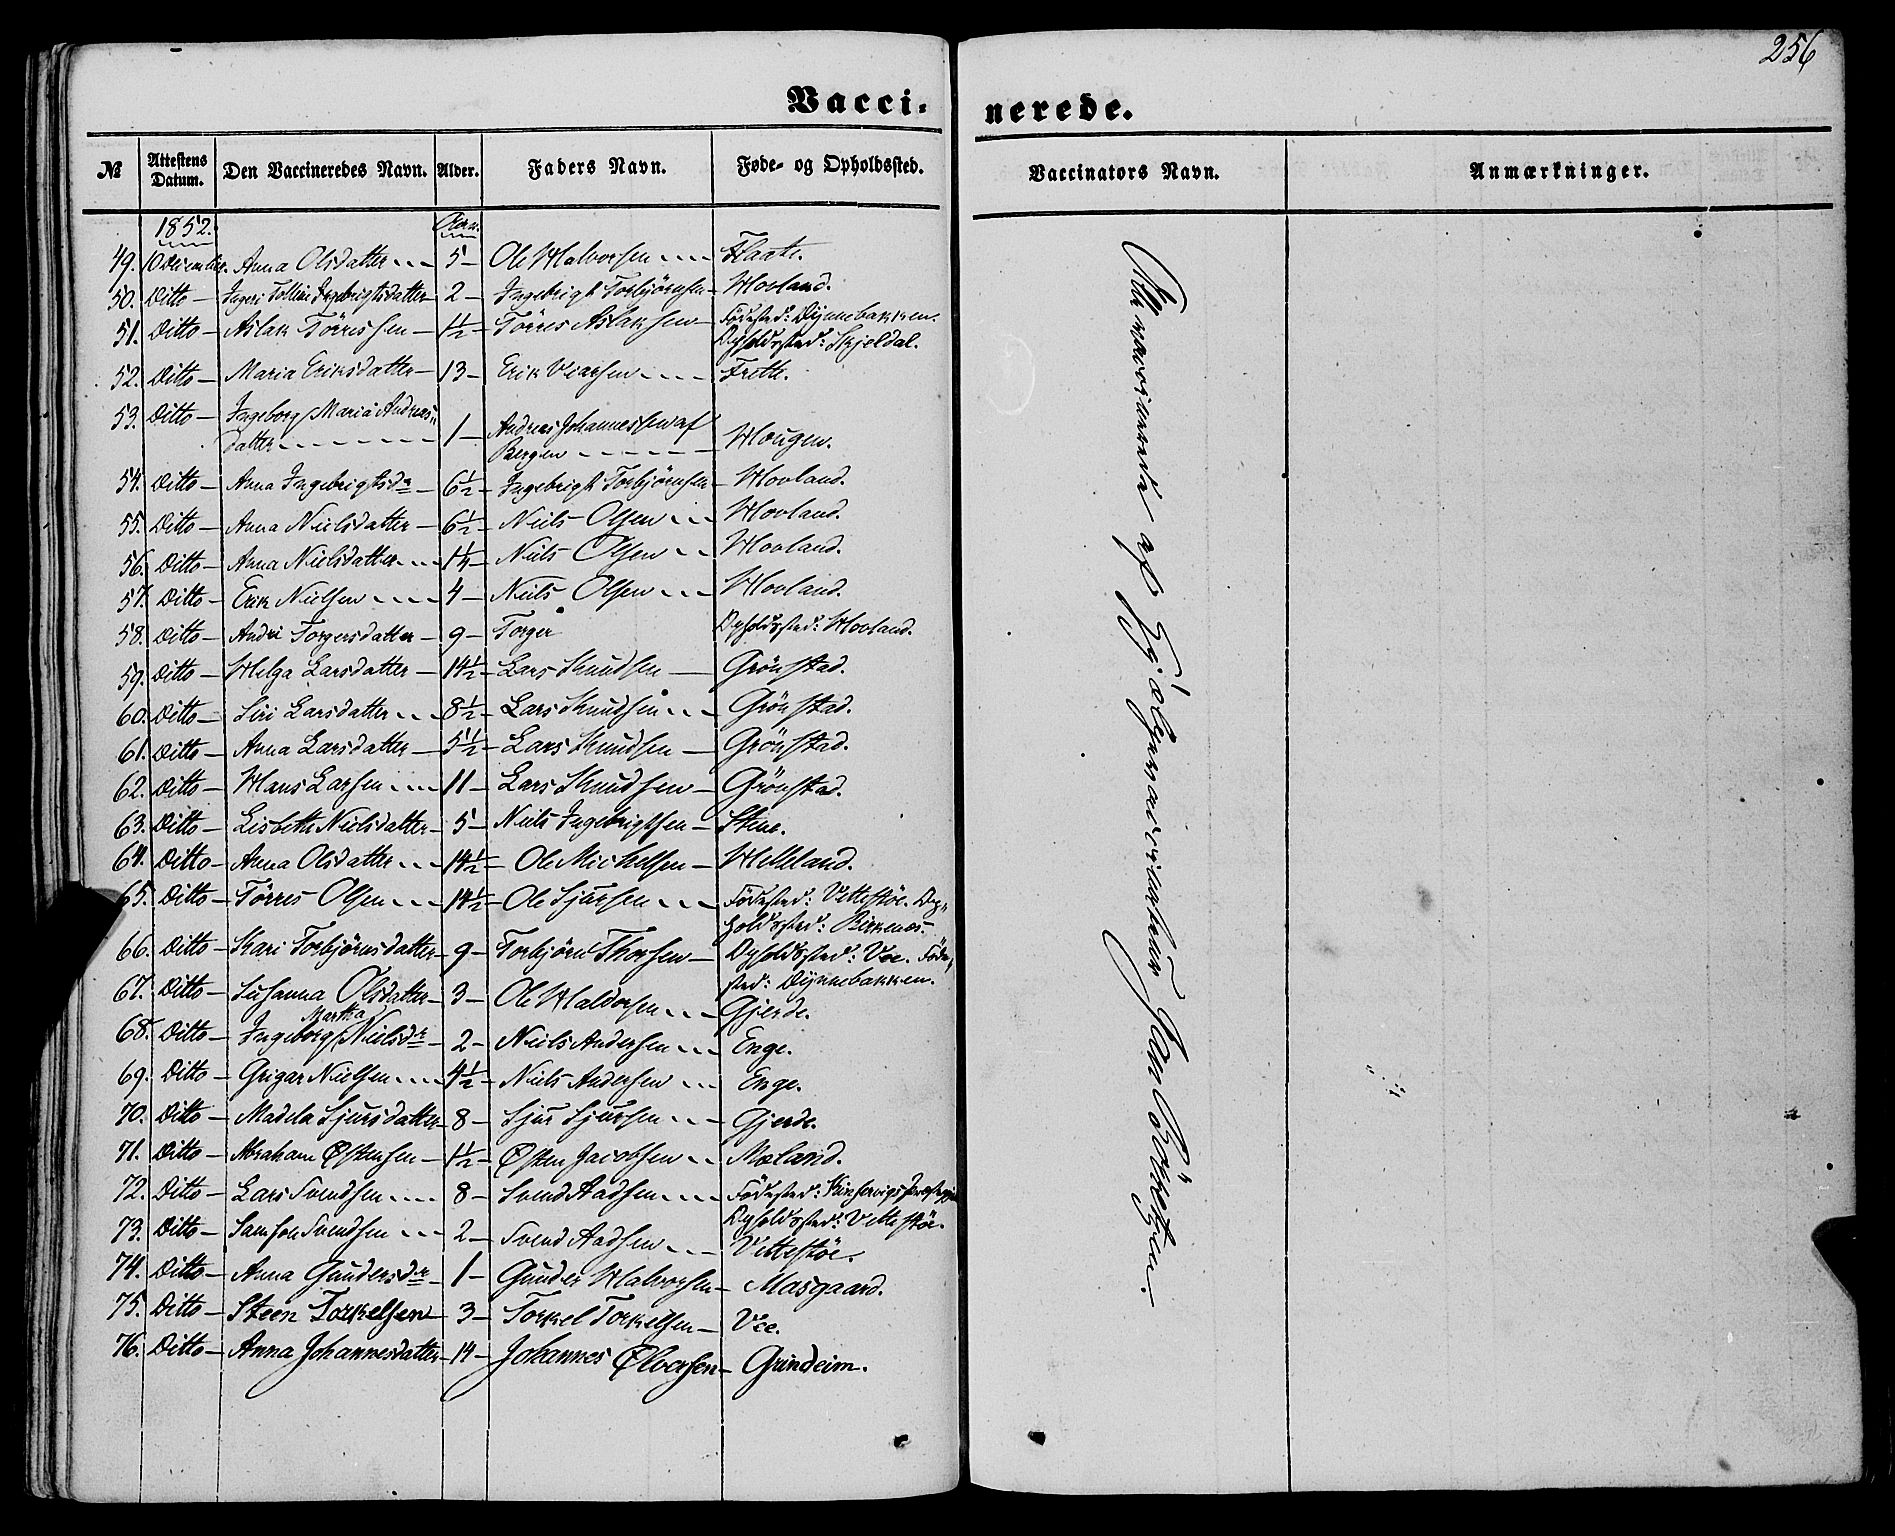 256
Vacci- nerede.
№ Attestens Datum. Den Vaccineredes Navn. Alder. Faders Navn. Føde- og Opholdssted. Vaccinators Navn. Anmærkninger.
1852.
49. 10 December. Anna Olsdatter 5 — Ole Halvorsen Flaate.
50. Ditto — Ingeri Ingebrigtsdatter — 2 — Ingebrigt Torbjörnsen — Hovland.
51. Ditto — Aslak Törressen — 1½ — Törres Aslaksen — Födested: Dÿnnebakken.
Opholdssted: Skjeldal.
52. Ditto — Maria Eriksdatter — 13 — Erik Frette.
53. Ditto — Ingeborg Maria Andreas-
datter 1 — Andreas Johannessen af
Bergen Hougen.
54. Ditto — Anna Ingebrigtsdr — 6½ — Ingebrigt Torbjörnsen — Hovland.
55. Ditto — Anna Nielsdatter — 6½ — Niels Olsen Hovland.
56. Ditto — Anna Nielsdatter Niels Olsen Hovland.
57. Ditto — Erik Nielsen 4 — Niels Olsen Hovland.
58. Ditto — Andri Torgersdatter — 9 — Torger Opholdssted: Hovland.
59. Ditto — Helga Larsdatter — 14½ — Lars Knudsen — Grönstad.
60. Ditto — Siri Larsdatter 8½ — Lars Knudsen Grönstad.
61. Ditto — Anna Larsdatter — 5½ — Lars Knudsen — Grönstad.
62. Ditto — Hans Larsen 11 — Lars Knudsen — Grönstad.
63. Ditto — Lisbeth Nielsdatter — 5 — Niels Ingebrigtsen — Stene.
64. Ditto — Anna Olsdatter 14½ — Ole Mickelsen — Helleland.
65. Ditto — Törres Olsen 14½ — Ole Sjursen Födested: Vettestöe. Op-
holdssted: Birknæs.
66. Ditto — Kari Torbjörnsdatter — 9 — Torbjörn Thorsen — Opholdssted: Vee. Föde-
sted: Dÿnnebakken.
67. Ditto — Susanna Olsdatter — 3 — Ole Haldorsen Gjerde.
68. Ditto — Ingeborg Martha Nielsdr — 2 — Niels Andersen Enge.
69. Ditto — Grigar Nielsen 4½ — Niels Andersen Enge.
70. Ditto — Madela Sjursdatter — 8 — Sjur Sjursen Gjerde.
71. Ditto — Abraham Østensen — 1½ — Østen Jacobsen Mæland.
72. Ditto — Lars Svendsen 8 — Svend Aadsen Födested: Kinservigs Præstegj.
Opholdssted: Vettestöe.
73. Ditto — Samson Svendsen 2 — Svend Aadsen Vettestöe.
74. Ditto — Anna Gundersdr — 1 — Gunder Halvorsen — Masgaard.
75. Ditto — Steen Torkelsen 3 — Torkel Torkelsen — Vee.
76. Ditto — Anna Johannesdatter — 14 — Johannes Ølversen — Grindeim.
Alle vaccinerede af Hjælpevaccinatør Jan